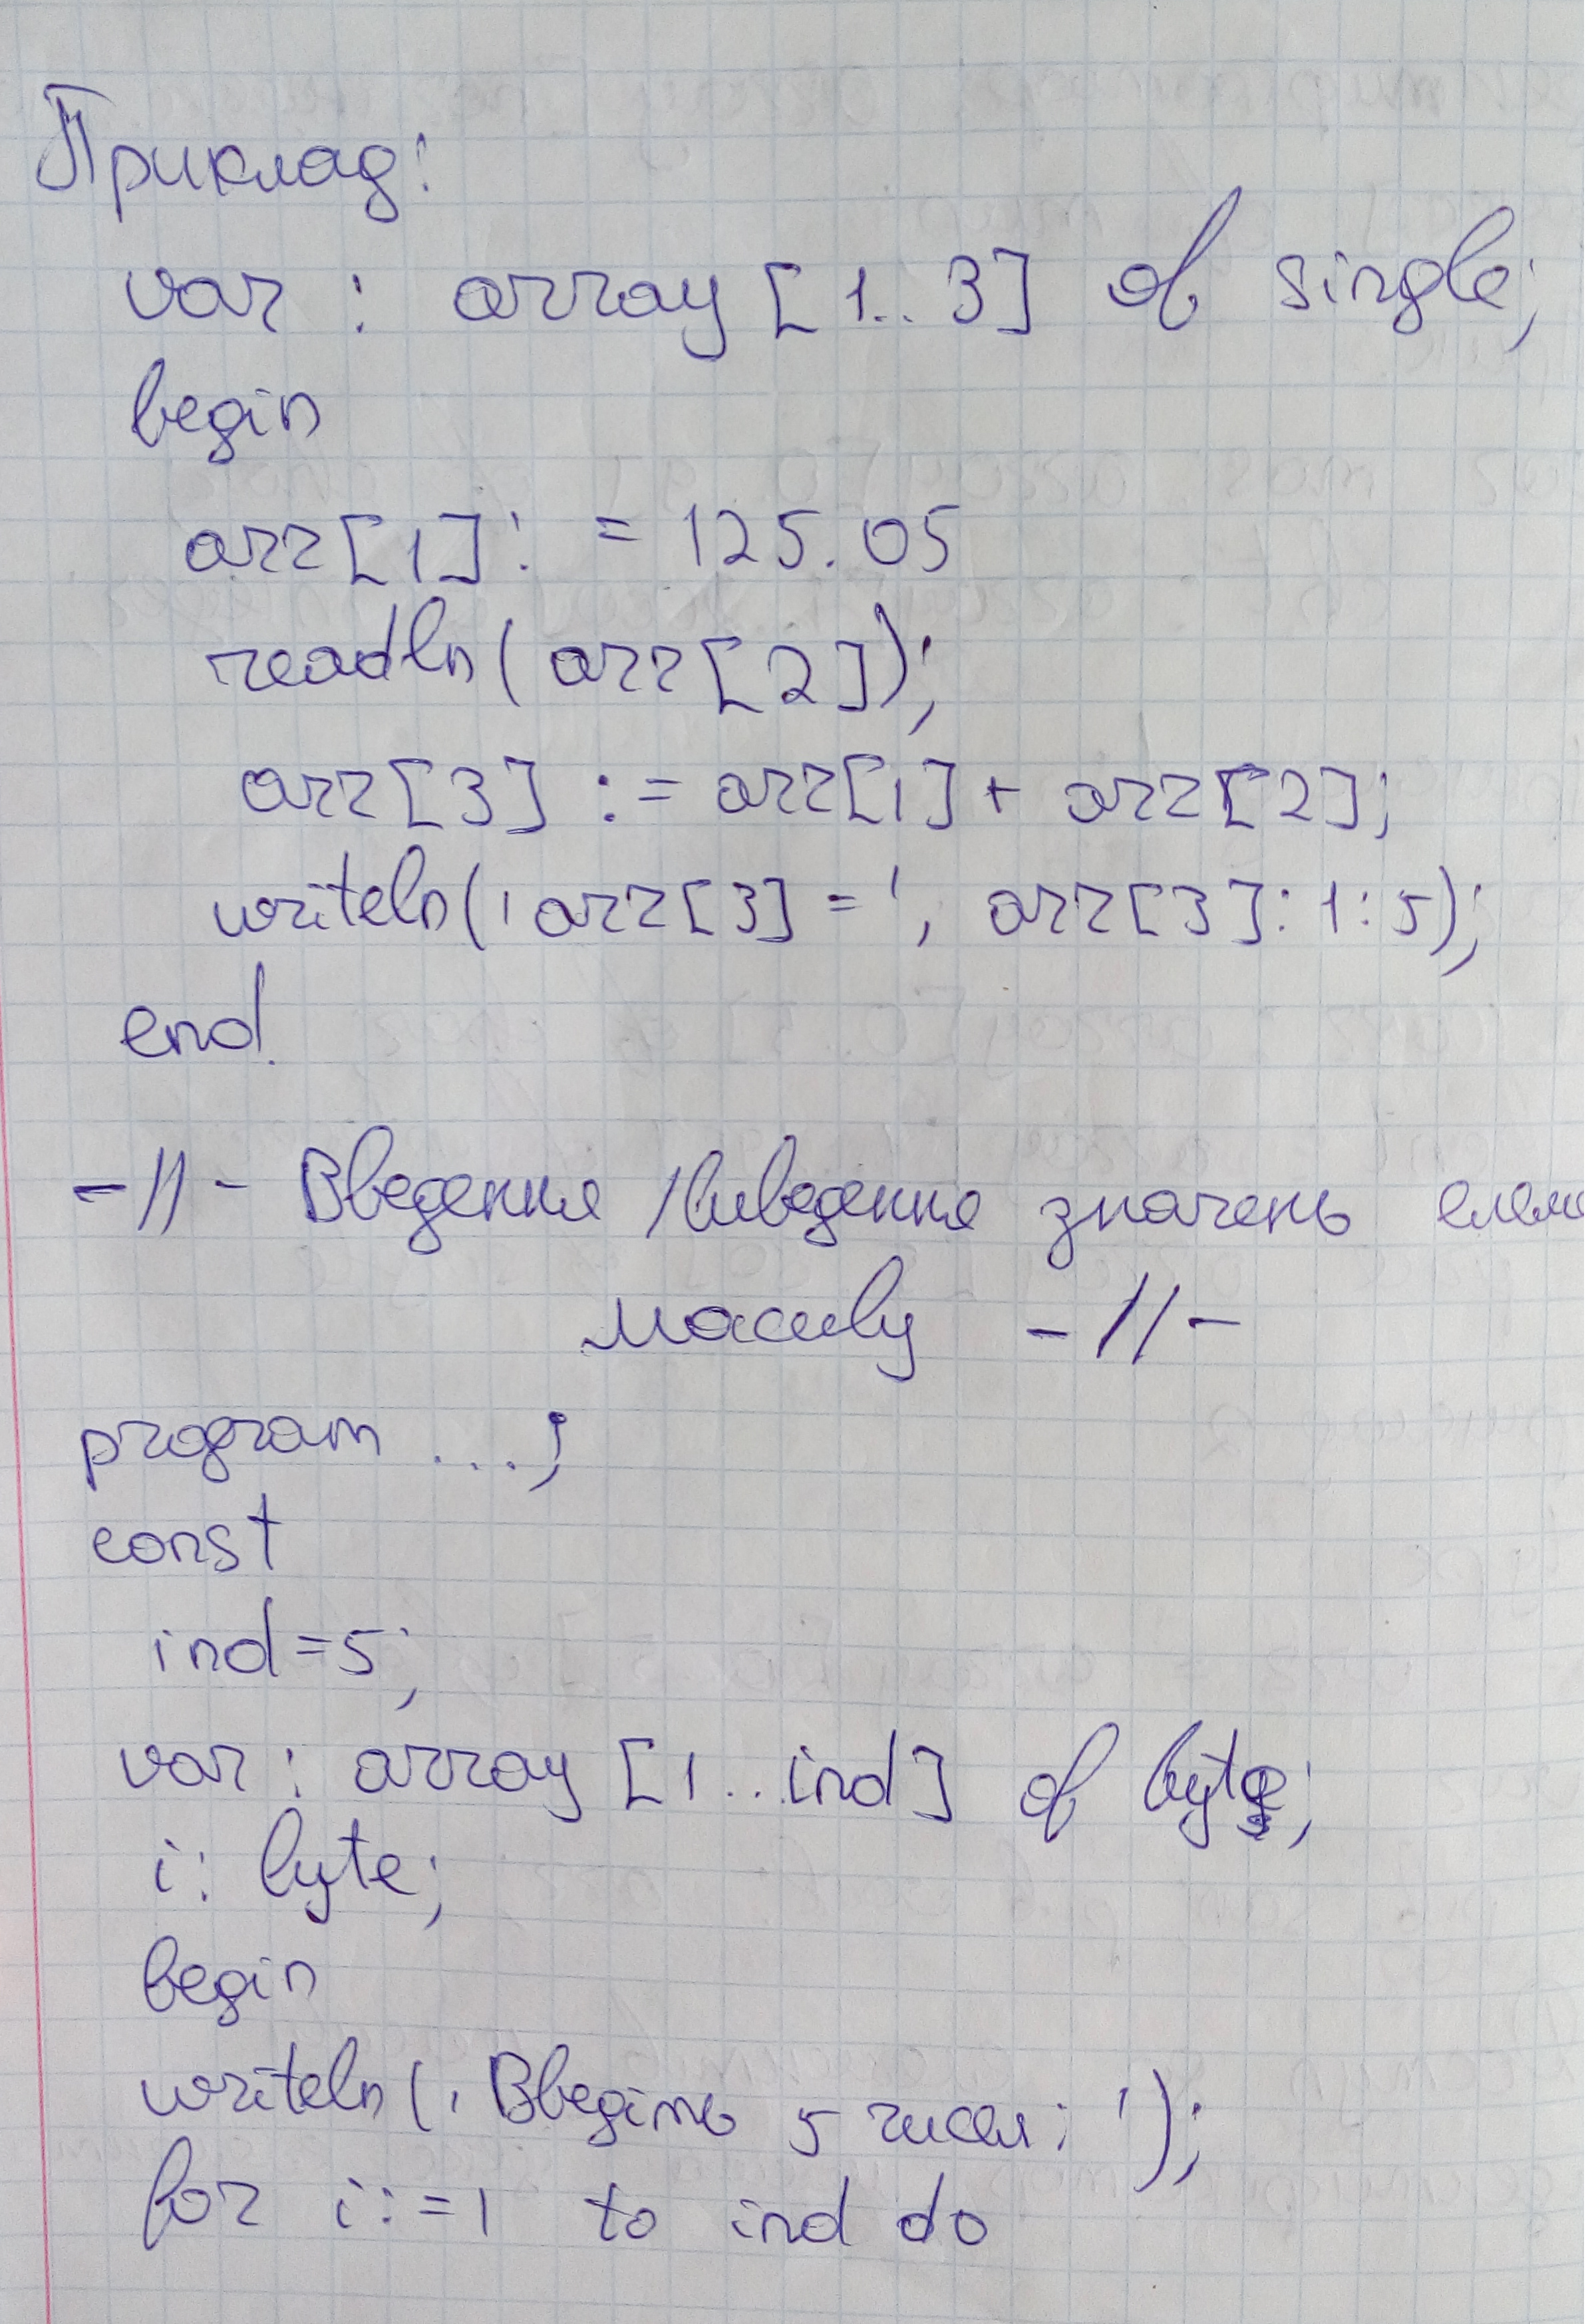 Приклад:
var : array [1..3] of single;
begin
arr[1]: = 125.05
readln(arr[2]);
arr[3] := arr[1] + arr[2];
writeln(' arr[3] = ', arr[3]:1:5);
end.
-//- Введення /виведення значень
масиву -//-
program ...;
const
ind=5;
var : array [1..ind] of byte;
i: byte;
begin
writeln(' Введіть 5 чисел: ');
for i:=1 to ind do